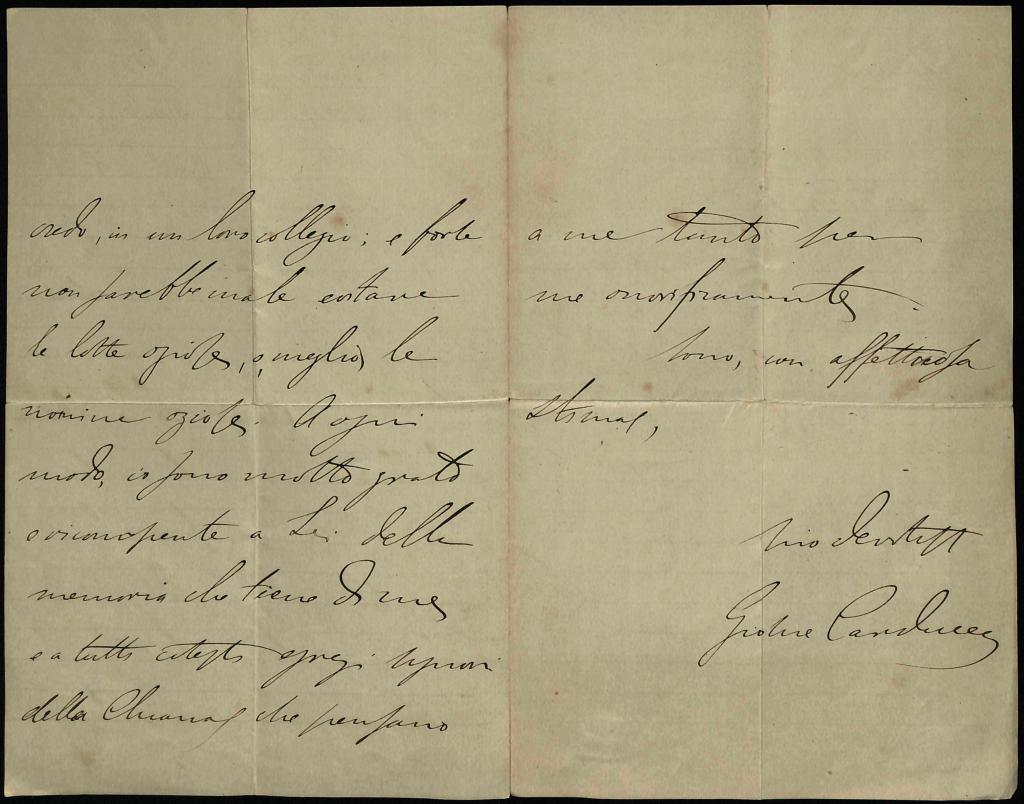 credo, in un loro collegio; e forse
non sarebbe male evitare
le lotte oziose, o meglio, le
nomine oziose. A ogni
modo, io sono molto grato
e riconoscente a Lei della
memoria che tiene di me,
e a tutti cotesti egregi signori
della Chiana, che pensano
a me tanto per
me onorificamente.
Sono, con affettuosa
stima,
suo devotiss
Giosue Carducci